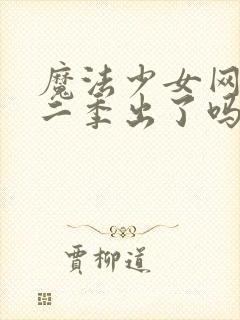 魔法少女网
二季出了吗
贾柳道